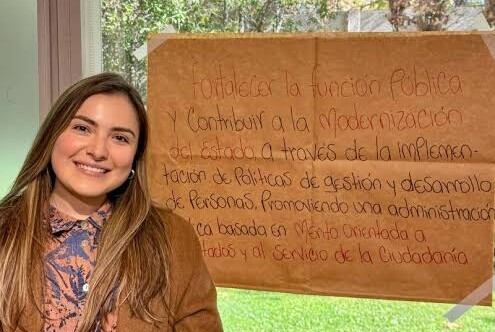 Fortalecer la función Pública
y Contribuir a la Modernización
del Estado, a través de la implemen-
tación de Políticas de gestión y desarrollo
de Personas, Promoviendo una administración
basada en Mérito orientada a
y al servicio de la Ciudadanía